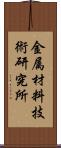 金属材料技
術研究所